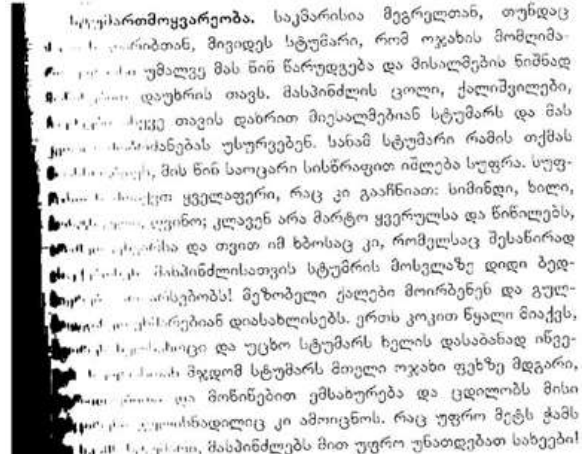 სტუმართმოყვარეობა. საკმარისია მეგრელთან, თუნდაც
მივიდეს სტუმარი, რომ ოჯახის მომღიმა-
უმალვე მას წინ წარუდგება და მისალმების ნიშნად
დაუხრის თავს. მასპინძლის ცოლი, ქალიშვილები,
თავის დახრით მიესალმებიან სტუმარს და მას
უსურვებენ. სანამ სტუმარი რამის თქმას
მის წინ საოცარი სისწრაფით იშლება სუფრა. სუფ-
ყველაფერი, რაც კი გააჩნიათ: სიმინდი, ხილი,
ღვინო; კლავენ არა მარტო ყვერულსა და წიწილებს,
და თვით იმ ხბოსაც კი, რომელსაც შესაწირად
მასპინძლისათვის სტუმრის მოსვლაზე დიდი ბედ-
არსებობს! მეზობელი ქალები მოირბენენ და გულ-
ეხმარებიან დიასახლისებს. ერთს კოკით წყალი მიაქვს,
და უცხო სტუმარს ხელის დასაბანად იწვე-
მჯდომ სტუმარს მთელი ოჯახი ფეხზე მდგარი,
და მოწიწებით ემსახურება და ცდილობს მისი
კი ამოიცნოს. რაც უფრო მეტს ჭამს
მასპინძლებს მით უფრო უნათდებათ სახეები!